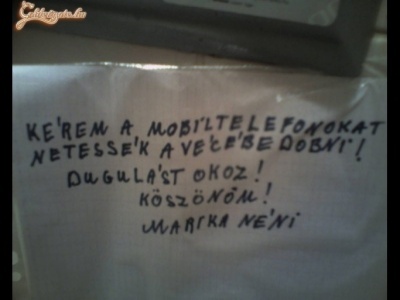 KÉREM A MOBILTELEFONOKAT
NETESSÉK A VÉCÉBE DOBNI!
DUGULÁST OKOZ!
KÖSZÖNÖM!
MARIKA NÉNI